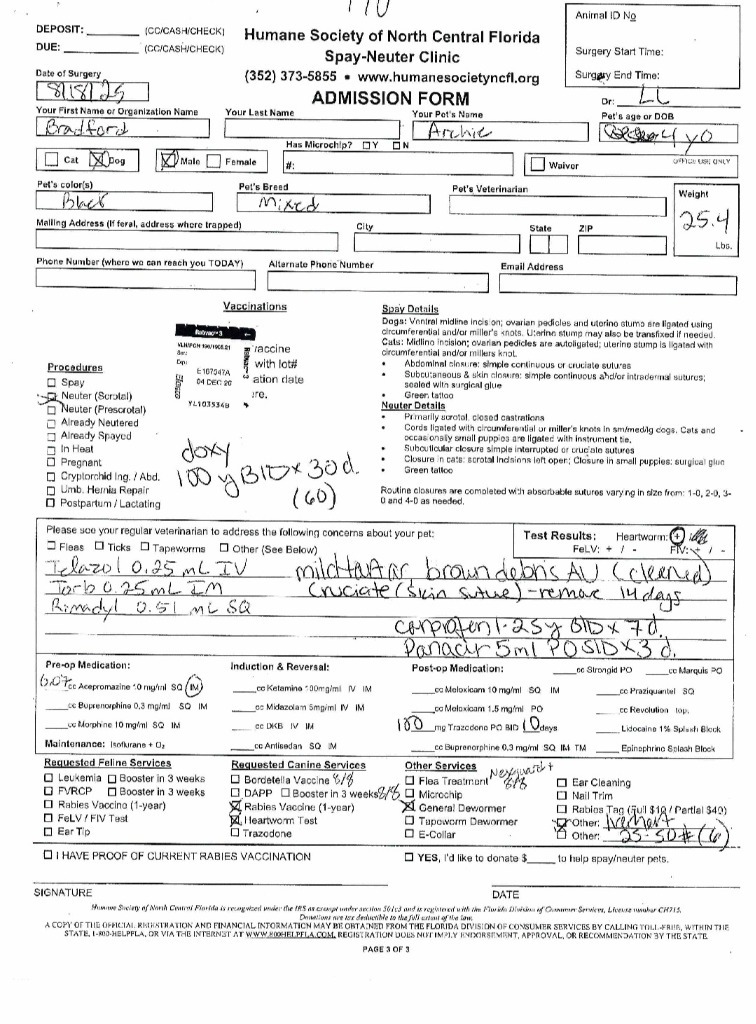 170
DEPOSIT: (CC/CASH/CHECK)
DUE: (CC/CASH/CHECK)
Humane Society of North Central Florida
Spay-Neuter Clinic
(352) 373-5855 • www.humanesocietyncfl.org
ADMISSION FORM
Animal ID No
Surgery Start Time:
Surgery End Time:
Dr: LL
Date of Surgery
8/18/25
Your First Name or Organization Name Your Last Name Your Pet's Name Pet's age or DOB
Bradford Archie 4 yo
Cat Dog Male Female Has Microchip? Y N
#: Waiver OFFICE USE ONLY
Pet's color(s) Pet's Breed Pet's Veterinarian Weight
Black Mixed 25.4 Lbs.
Mailing Address (If feral, address where trapped) City State ZIP
Phone Number (where we can reach you TODAY) Alternate Phone Number Email Address
Vaccinations
vaccine
with lot#
E107547A
04 DEC 26
ation date
YL103534B
Zoetis
Procedures
Spay
Neuter (Scrotal)
Neuter (Prescrotal)
Already Neutered
Already Spayed
In Heat
Pregnant
Cryptorchid Ing. / Abd.
Umb. Hernia Repair
Postpartum / Lactating
doxy
100 y BID x 30 d.
(60)
Spay Details
Dogs: Ventral midline incision; ovarian pedicles and uterine stump are ligated using
circumferential and/or miller's knots. Uterine stump may also be transfixed if needed.
Cats: Midline incision; ovarian pedicles are autoligated; uterine stump is ligated with
circumferential and/or millers knot.
• Abdominal closure: simple continuous or cruciate sutures
• Subcutaneous & skin closure: simple continuous and/or intradermal sutures;
sealed with surgical glue
• Green tattoo
Neuter Details
• Primarily scrotal, closed castrations
• Cords ligated with circumferential or miller's knots in sm/med/lg dogs. Cats and
occasionally small puppies are ligated with instrument tie.
• Subcuticular closure simple interrupted or cruciate sutures
• Closure in cats: scrotal incisions left open; Closure in small puppies: surgical glue
• Green tattoo
Routine closures are completed with absorbable sutures varying in size from: 1-0, 2-0, 3-
0 and 4-0 as needed.
Please see your regular veterinarian to address the following concerns about your pet:
Fleas Ticks Tapeworms Other (See Below)
Test Results: Heartworm: +
FeLV: + / - FIV: + / -
Telazol 0.25 mL IV
Torb 0.25 mL IM
Rimadyl 0.51 mL SQ
mild tartar brown debris AU (cleaned)
Cruciate (skin suture) - remove 14 days
carprofen 1-25 y BID x 7 d.
Panacur 5ml PO SID x 3 d.
Pre-op Medication:
0.07 cc Acepromazine 10 mg/ml SQ IM
cc Buprenorphine 0.3 mg/ml SQ IM
cc Morphine 10 mg/ml SQ IM
Maintenance: Isoflurane + O₂
Induction & Reversal:
cc Ketamine 100mg/ml IV IM
cc Midazolam 5mg/ml IV IM
cc DKB IV IM
cc Antisedan SQ IM
Post-op Medication:
cc Meloxicam 10 mg/ml SQ IM
cc Meloxicam 1.5 mg/ml PO
100 mg Trazodone PO BID 10 days
cc Buprenorphine 0.3 mg/ml SQ IM TM
cc Strongid PO cc Marquis PO
cc Praziquantel SQ
cc Revolution top.
Lidocaine 1% Splash Block
Epinephrine Splash Block
Requested Feline Services
Leukemia Booster in 3 weeks
FVRCP Booster in 3 weeks
Rabies Vaccine (1-year)
FeLV / FIV Test
Ear Tip
Requested Canine Services
Bordetella Vaccine 8/8
DAPP Booster in 3 weeks 8/8
Rabies Vaccine (1-year)
Heartworm Test
Trazodone
Other Services
Nexgard +
Flea Treatment 8/8
Microchip
General Dewormer
Tapeworm Dewormer
E-Collar
Ear Cleaning
Nail Trim
Rabies Tag (Full $10 / Partial $40)
Other: Iverhart
Other: 25-50# (6)
I HAVE PROOF OF CURRENT RABIES VACCINATION
YES, I'd like to donate $ to help spay/neuter pets.
SIGNATURE DATE
Humane Society of North Central Florida is recognized under the IRS as exempt under section 501c3 and is registered with the Florida Division of Consumer Services, License number CH715.
Donations are tax deductible to the full extent of the law.
A COPY OF THE OFFICIAL REGISTRATION AND FINANCIAL INFORMATION MAY BE OBTAINED FROM THE FLORIDA DIVISION OF CONSUMER SERVICES BY CALLING TOLL-FREE, WITHIN THE
STATE, 1-800-HELPFLA, OR VIA THE INTERNET AT WWW.800HELPFLA.COM. REGISTRATION DOES NOT IMPLY ENDORSEMENT, APPROVAL, OR RECOMMENDATION BY THE STATE.
PAGE 3 OF 3